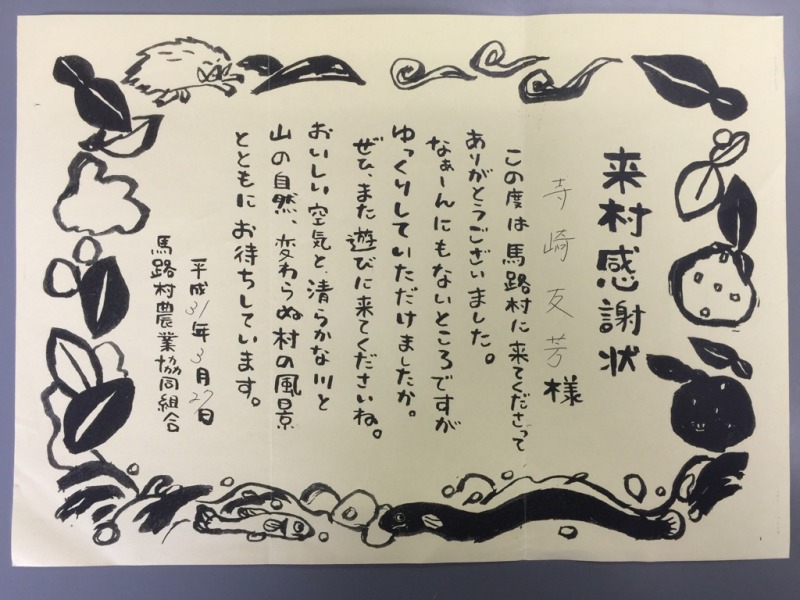 来村感謝状
寺崎友芳様
この度は馬路村に来てくださって
ありがとうございました。
なぁーんにもないところですが
ゆっくりしていただけましたか。
ぜひ、また遊びに来てくださいね。
おいしい空気と、清らかな川と
山の自然、変わらぬ村の風景
とともにお待ちしています。
平成31年3月27日
馬路村農業協同組合